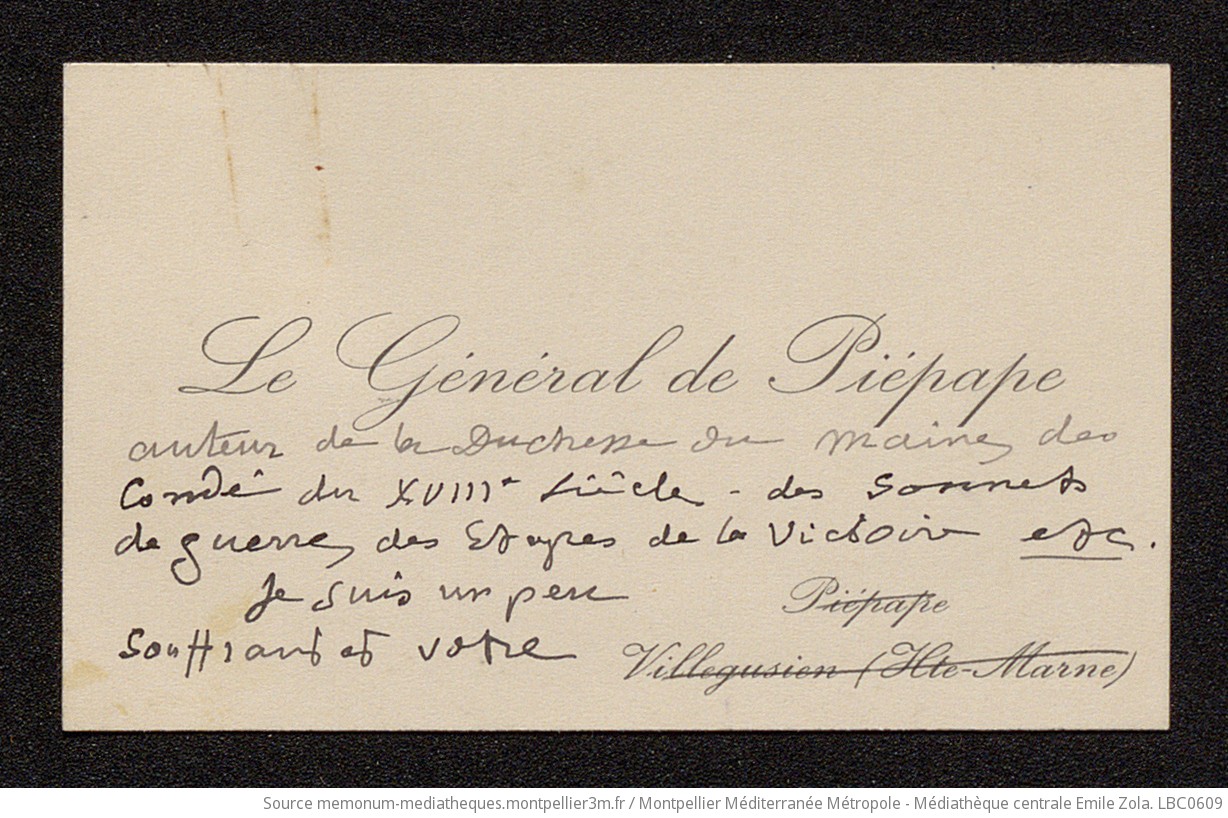 Le Général de Piépape
auteur de la Duchesse du Maine, des
Condé du XVIIIe Siècle - des Sonnets
de guerre, des Etapes de la Victoire etc.
Je suis un peu
Piépape
souffrant et votre
Villegusien (Hte-Marne)
Source memonum-mediatheques.montpellier3m.fr / Montpellier Méditerranée Métropole - Médiathèque centrale Emile Zola. LBC0609